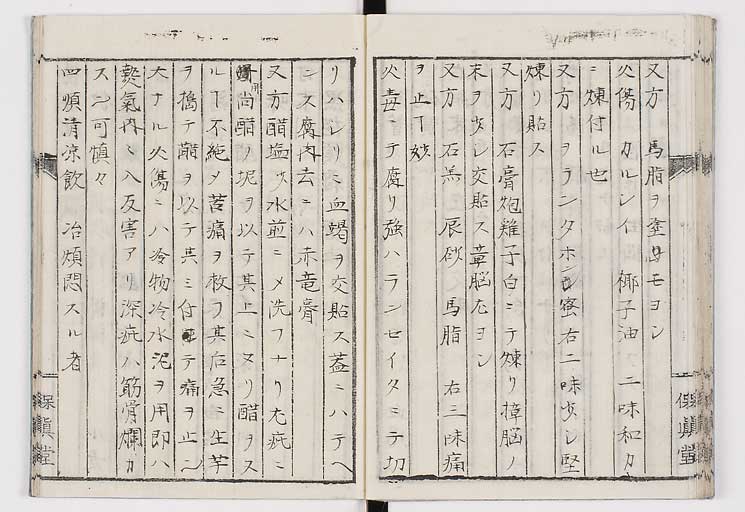 又方 馬脂ヲ塗ルモヨシ
火傷 カルシイ 椰子油 二味和カ
ニ煉付ル也
又方 ヲランタホシ 蜜右二味少シ堅
煉リ貼ス
又方 石膏炮雞子白ニテ煉リ樟脳ノ
末ヲ少シ交貼ス葦脳尤ヨシ
又方 石羔 辰砂 馬脂 右三味痛
ヲ止ㇿ妙
火毒ニテ腐リ強ハランセイタミテ切
リハレリミ血竭ヲ交貼ス蓋ミハテヘ
シス腐肉去ニハ赤竜膏
又方醋塩少水並ニメ洗フナリ尤疵ニ
尚醋ヲ泥ヲ以テ其上ミヌリ醋ヲス
ルㇿ不絶メ苦痛ヲ救フ其后急ニ生芋
ヲ搗テ醋ヲ以テ共ミ付テ痛ヲ止ム
大ナル火傷ニハ冷物冷水泥ヲ用即ハ
熱氣内ミ入反害アリ深疵ハ筋骨爛カ
スシ可慎々
四順清凉飲 治煩悶スル者
保眞堂
保眞堂